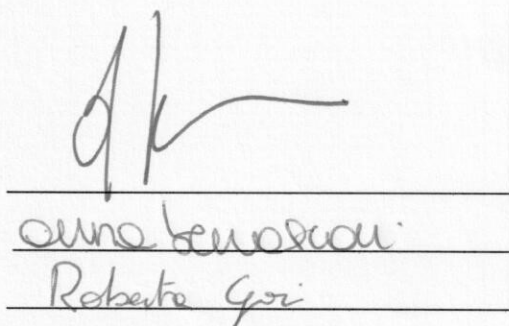 Anna Bernasconi
Roberta Gori